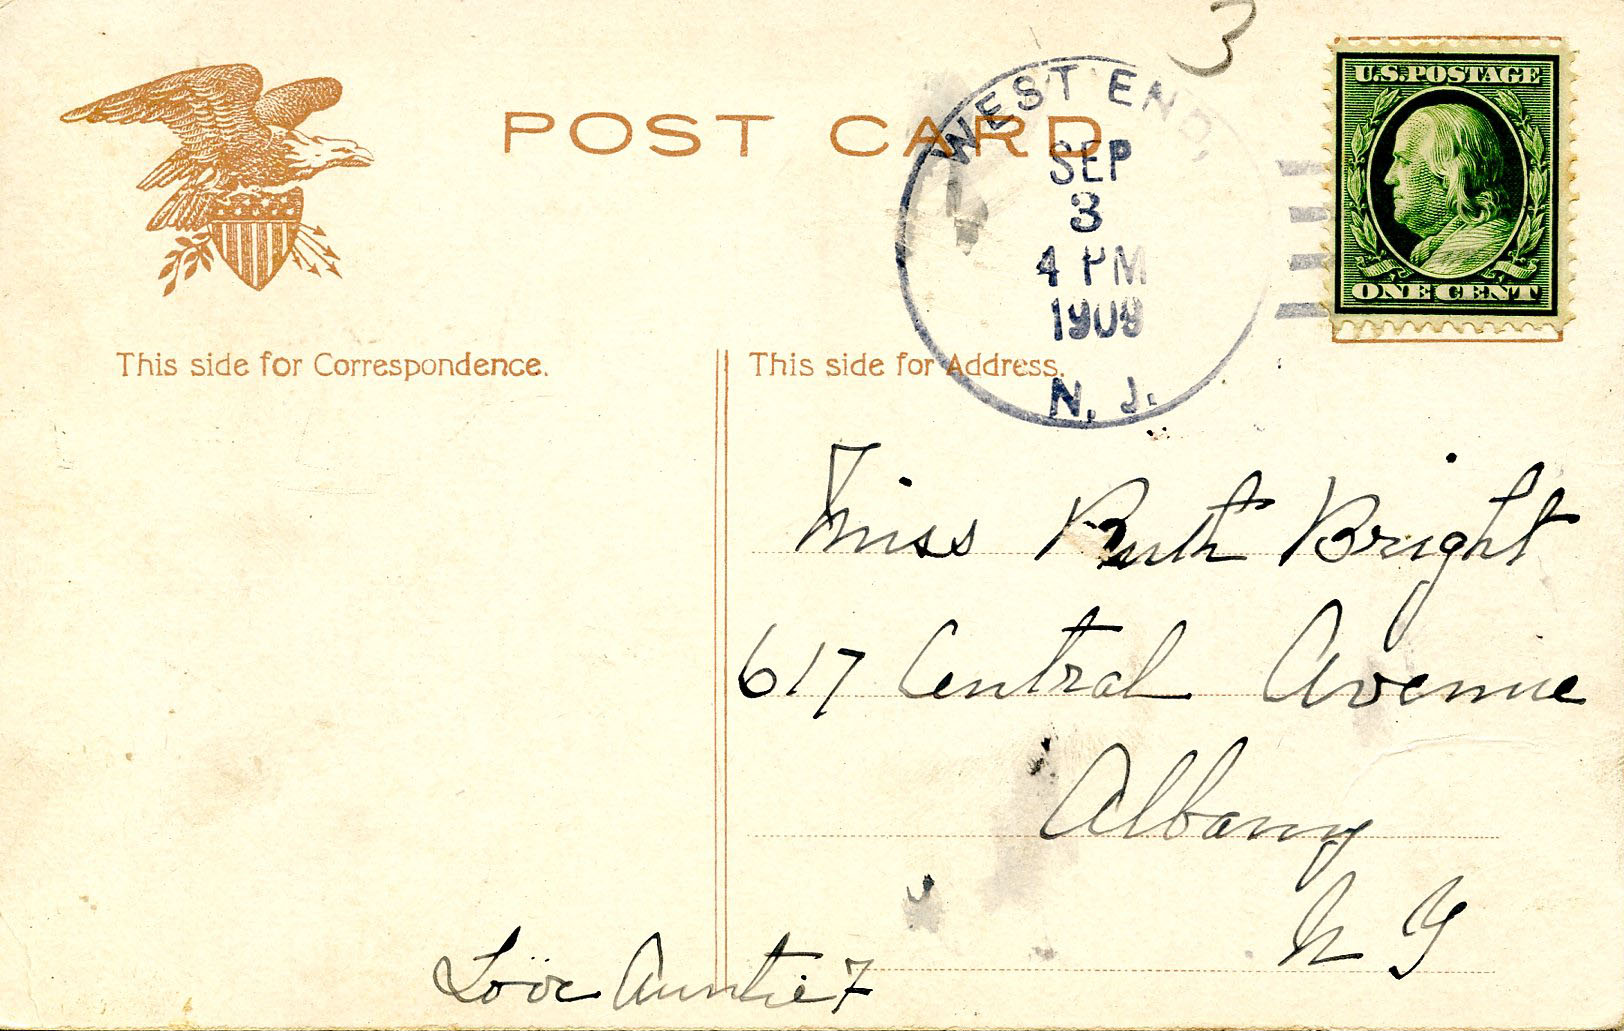 3
POST CARD
WEST END,
SEP
3
4 PM
1909
N. J.
U.S. POSTAGE
ONE CENT
This side for Correspondence.
This side for Address.
Miss Ruth Bright
617 Central Avenue
Albany
N Y
Love Auntie F